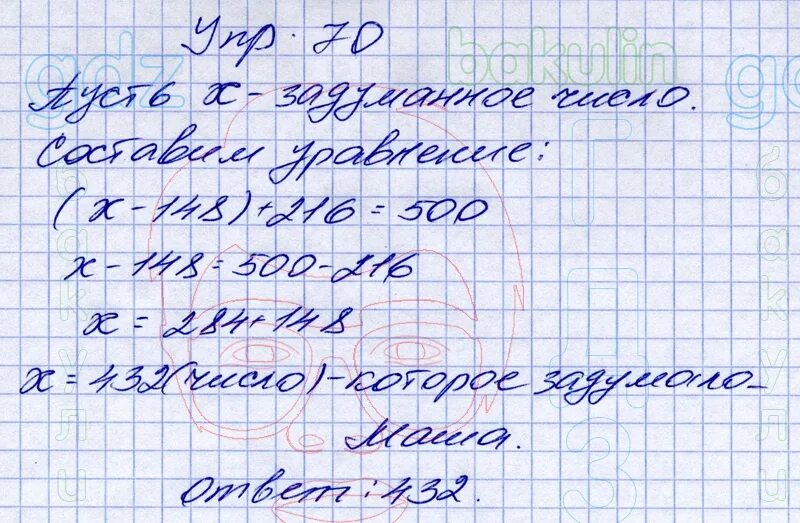 Упр. 70
Пусть x - задуманное число.
Составим уравнение:
(x - 148) + 216 = 500
x - 148 = 500 - 216
x = 284 + 148
x = 432 (число) - которое задумало
Маша.
Ответ: 432.
gdz
bakulin